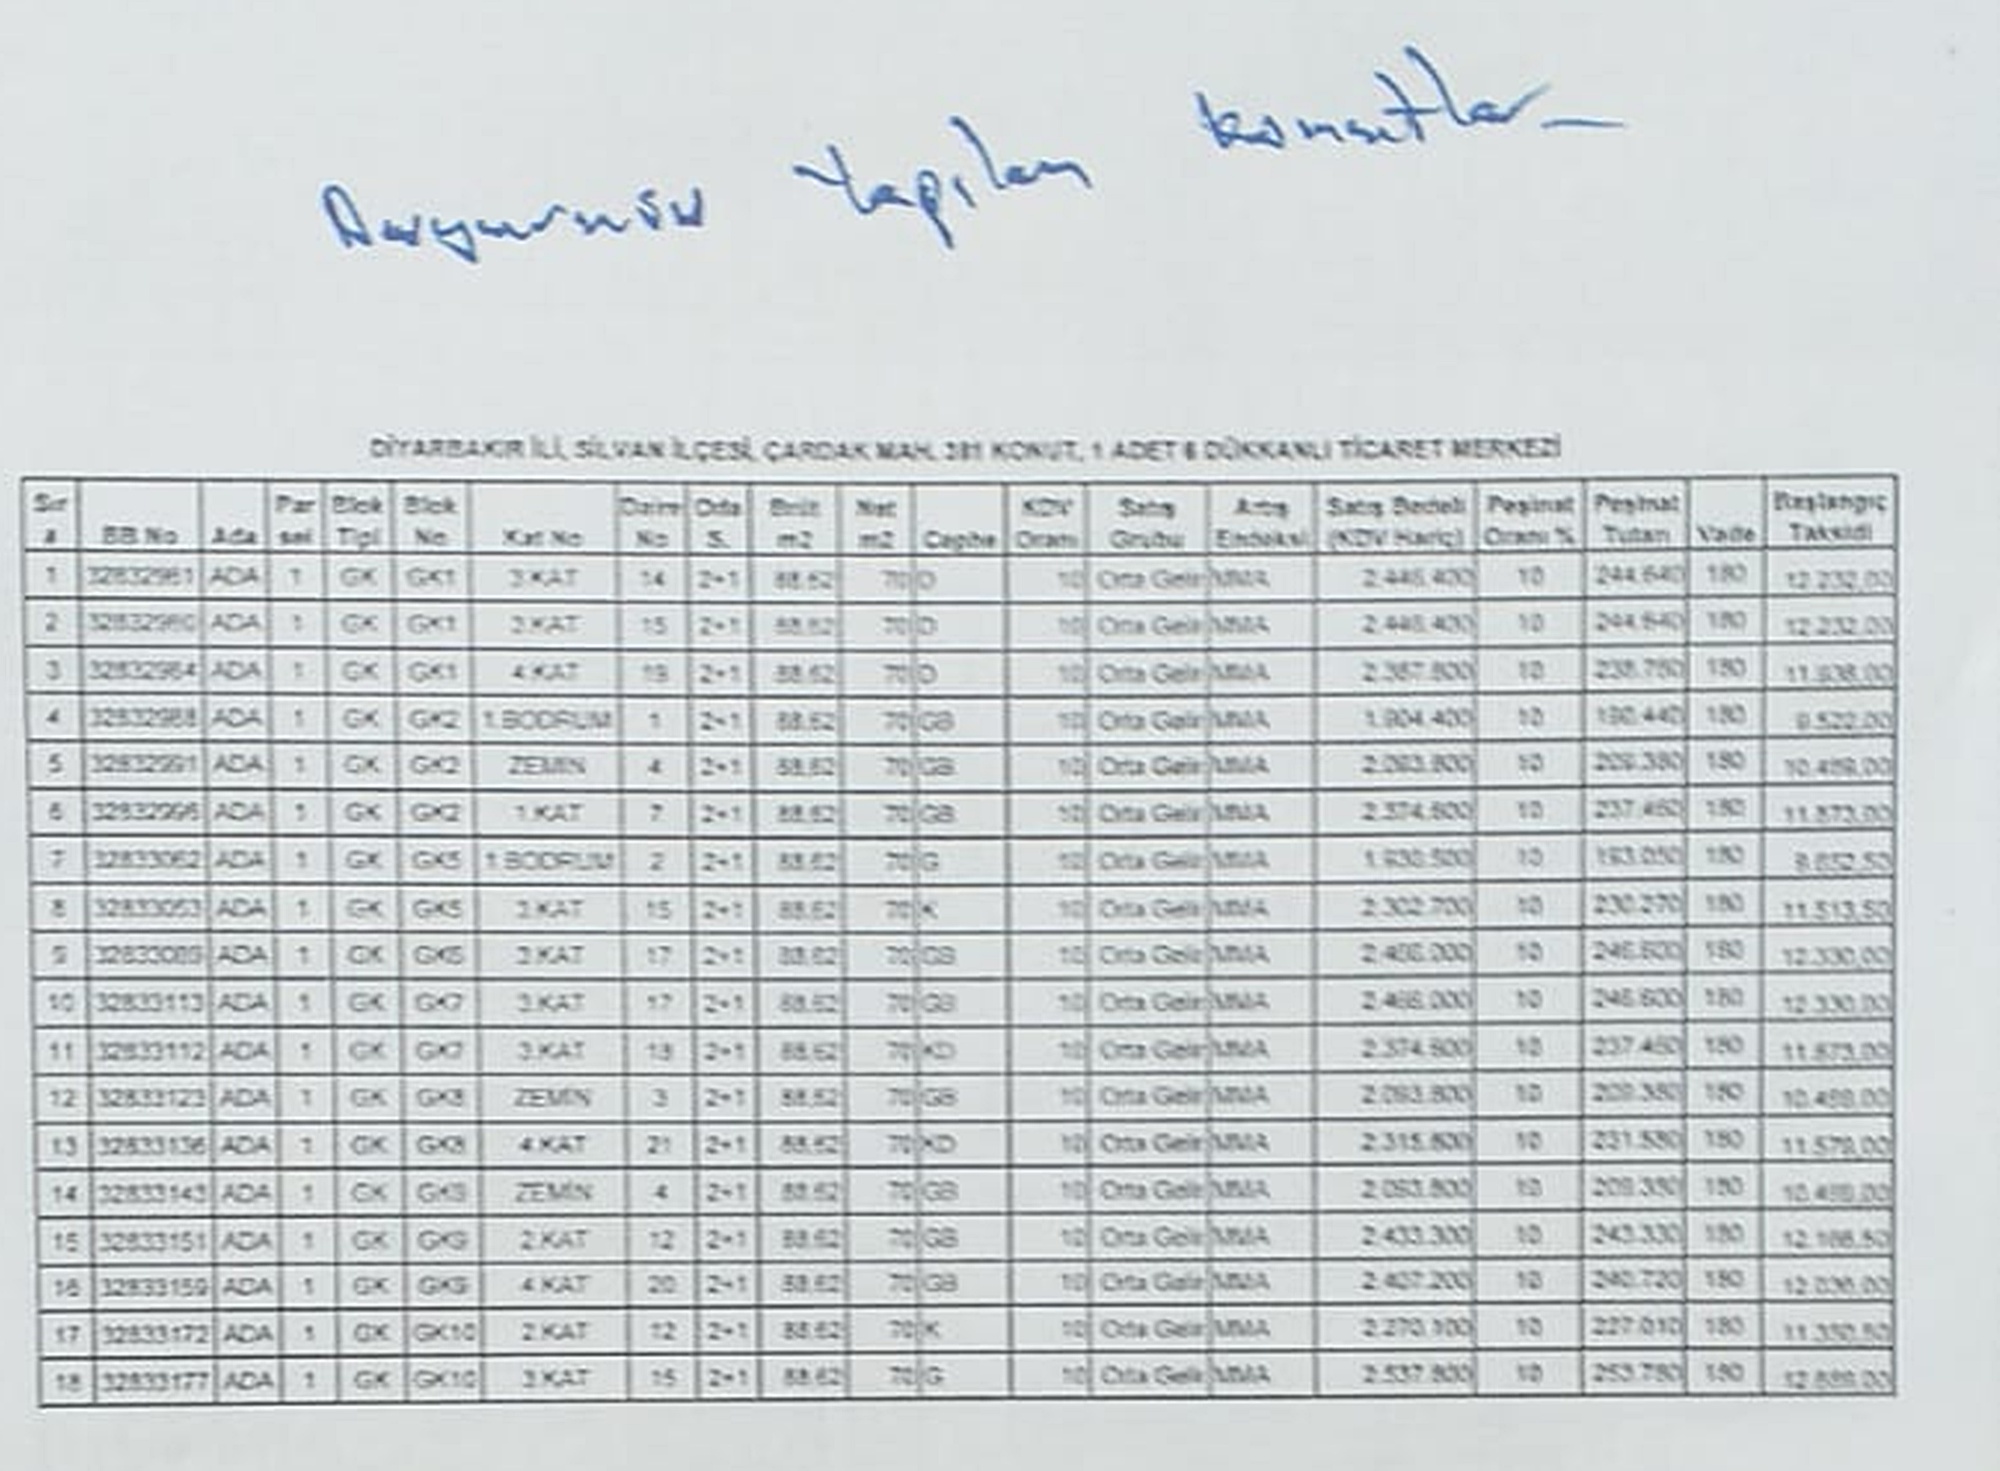 Duyurusu Yapılan konutlar
DİYARBAKIR İLİ, SİLVAN İLÇESİ, ÇARDAK MAH. 381 KONUT, 1 ADET 6 DÜKKANLI TİCARET MERKEZİ
Sıra BB No Ada Parsel Blok Tipi Blok No Kat No Daire No Oda S. Brüt m2 Net m2 Cephe KDV Oranı Satış Grubu Artış Endeksi Satış Bedeli (KDV Hariç) Peşinat Oranı % Peşinat Tutarı Vade Başlangıç Taksidi
1 32832961 ADA 1 GK GK1 3.KAT 14 2+1 88.62 70 D 10 Orta Gelir MMA 2.446.400 10 244.640 180 12.232,00
2 32832960 ADA 1 GK GK1 3.KAT 15 2+1 88.62 70 D 10 Orta Gelir MMA 2.446.400 10 244.640 180 12.232,00
3 32832964 ADA 1 GK GK1 4.KAT 19 2+1 88.62 70 D 10 Orta Gelir MMA 2.387.600 10 238.760 180 11.938,00
4 32832988 ADA 1 GK GK2 1.BODRUM 1 2+1 88.62 70 GB 10 Orta Gelir MMA 1.904.400 10 190.440 180 9.522,00
5 32832991 ADA 1 GK GK2 ZEMİN 4 2+1 88.62 70 GB 10 Orta Gelir MMA 2.093.800 10 209.380 180 10.469,00
6 32832996 ADA 1 GK GK2 1.KAT 7 2+1 88.62 70 GB 10 Orta Gelir MMA 2.374.600 10 237.460 180 11.873,00
7 32833062 ADA 1 GK GK5 1.BODRUM 2 2+1 88.62 70 G 10 Orta Gelir MMA 1.930.500 10 193.050 180 9.652,50
8 32833053 ADA 1 GK GK5 3.KAT 15 2+1 88.62 70 K 10 Orta Gelir MMA 2.302.700 10 230.270 180 11.513,50
9 32833089 ADA 1 GK GK6 3.KAT 17 2+1 88.62 70 GB 10 Orta Gelir MMA 2.466.000 10 246.600 180 12.330,00
10 32833113 ADA 1 GK GK7 3.KAT 17 2+1 88.62 70 GB 10 Orta Gelir MMA 2.466.000 10 246.600 180 12.330,00
11 32833112 ADA 1 GK GK7 3.KAT 18 2+1 88.62 70 KD 10 Orta Gelir MMA 2.374.600 10 237.460 180 11.873,00
12 32833123 ADA 1 GK GK8 ZEMİN 3 2+1 88.62 70 GB 10 Orta Gelir MMA 2.093.800 10 209.380 180 10.469,00
13 32833136 ADA 1 GK GK8 4.KAT 21 2+1 88.62 70 KD 10 Orta Gelir MMA 2.315.800 10 231.580 180 11.579,00
14 32833143 ADA 1 GK GK9 ZEMİN 4 2+1 88.62 70 GB 10 Orta Gelir MMA 2.093.800 10 209.380 180 10.469,00
15 32833151 ADA 1 GK GK9 2.KAT 12 2+1 88.62 70 GB 10 Orta Gelir MMA 2.433.300 10 243.330 180 12.166,50
16 32833159 ADA 1 GK GK9 4.KAT 20 2+1 88.62 70 GB 10 Orta Gelir MMA 2.407.200 10 240.720 180 12.036,00
17 32833172 ADA 1 GK GK10 2.KAT 12 2+1 88.62 70 K 10 Orta Gelir MMA 2.270.100 10 227.010 180 11.350,50
18 32833177 ADA 1 GK GK10 3.KAT 15 2+1 88.62 70 G 10 Orta Gelir MMA 2.537.800 10 253.780 180 12.689,00